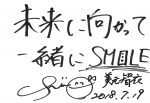 未来に向かって
一緒に SMILE
2018.7.19